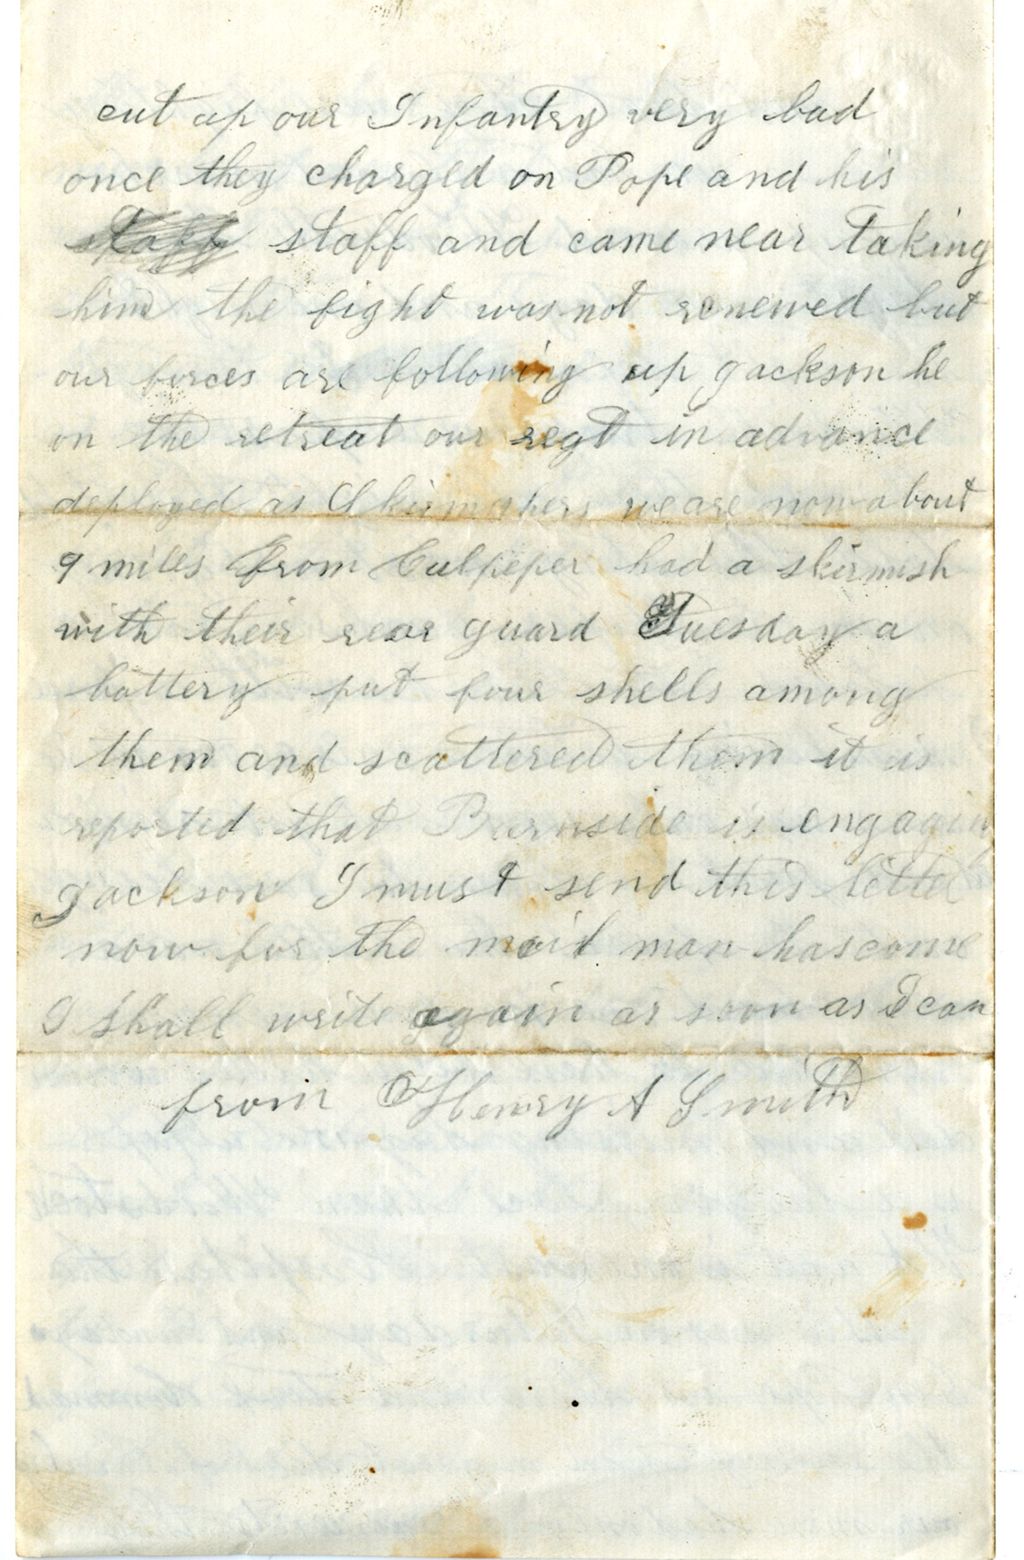 cut up our Infantry very bad
once they charged on Pope and his
staff staff and came near taking
him the fight was not renewed but
our forces are following up Jackson he
on the retreat our regt in advance
deployed as Skirmishers we are now about
9 miles from Culpeper had a skirmish
with their rear guard Tuesday a
battery put four shells among
them and scattered them it is
reported that Burnside is engaging
Jackson I must send this letter
now for the mail man has come
I shall write again as soon as I can
from Henry A Smith